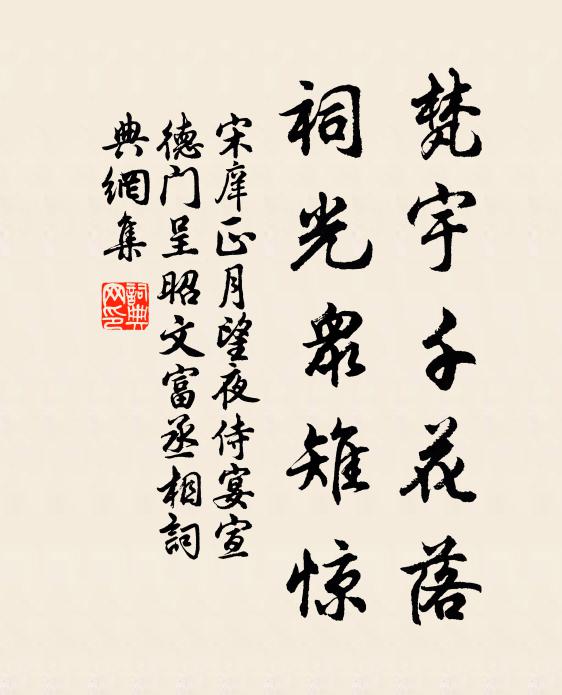 梵宇千花落
祠光众雉惊
宋庠正月望夜侍宴宣
德门呈昭文富丞相詞
典網集
詞典网印